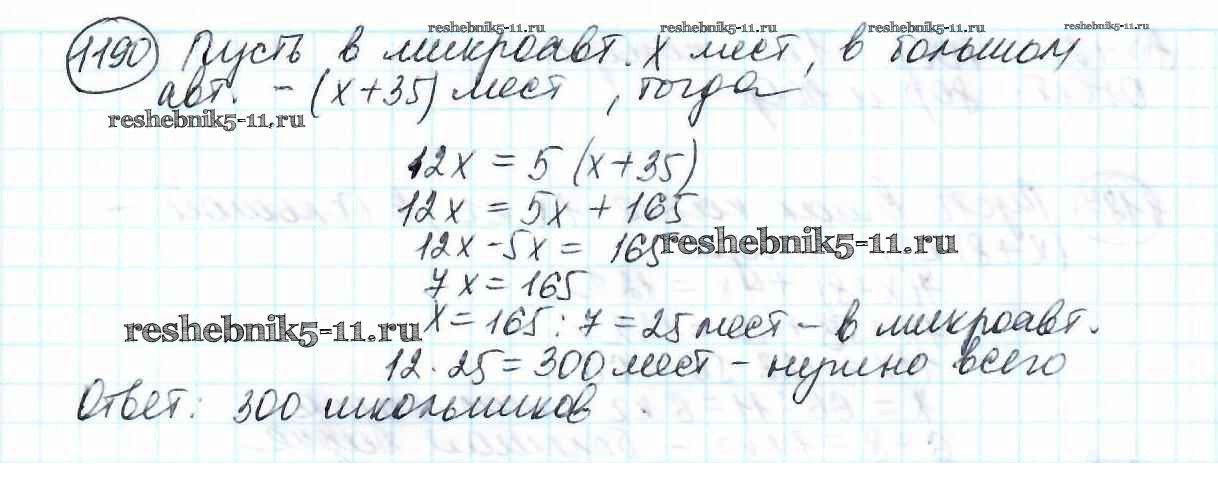 reshebnik5-11.ru reshebnik5-11.ru reshebnik5-11.ru reshebnik5-11.ru
1190 Пусть в микроавт. x мест, в большом
авт. - (x+35) мест, тогда
reshebnik5-11.ru
12x = 5 (x+35)
12x = 5x + 165
12x - 5x = 165
reshebnik5-11.ru
7x = 165
reshebnik5-11.ru
x = 165 : 7 = 25 мест - в микроавт.
12 · 25 = 300 мест - нужно всего
Ответ: 300 школьников